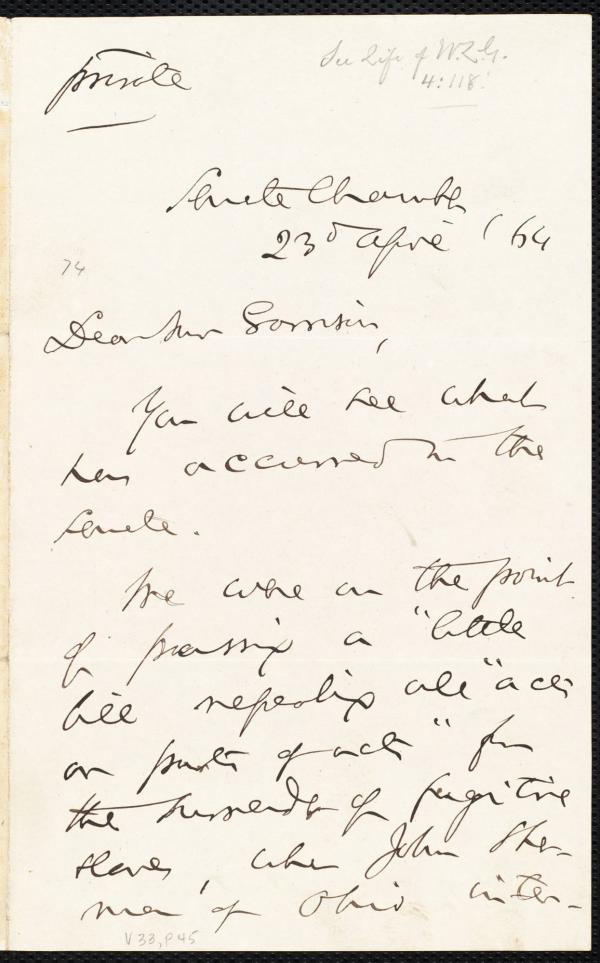 private
See Life of W.L.G.
4:118.
Senate Chamber
23d April '64
74
Dear Mr Garrison,
You will see what
has occurred in the
Senate.
We were on the point
of passing a "little
bill repealing all "acts
or parts of acts" for
the surrender of fugitive
slaves, when John Sher-
man of Ohio inter-
V33, P45